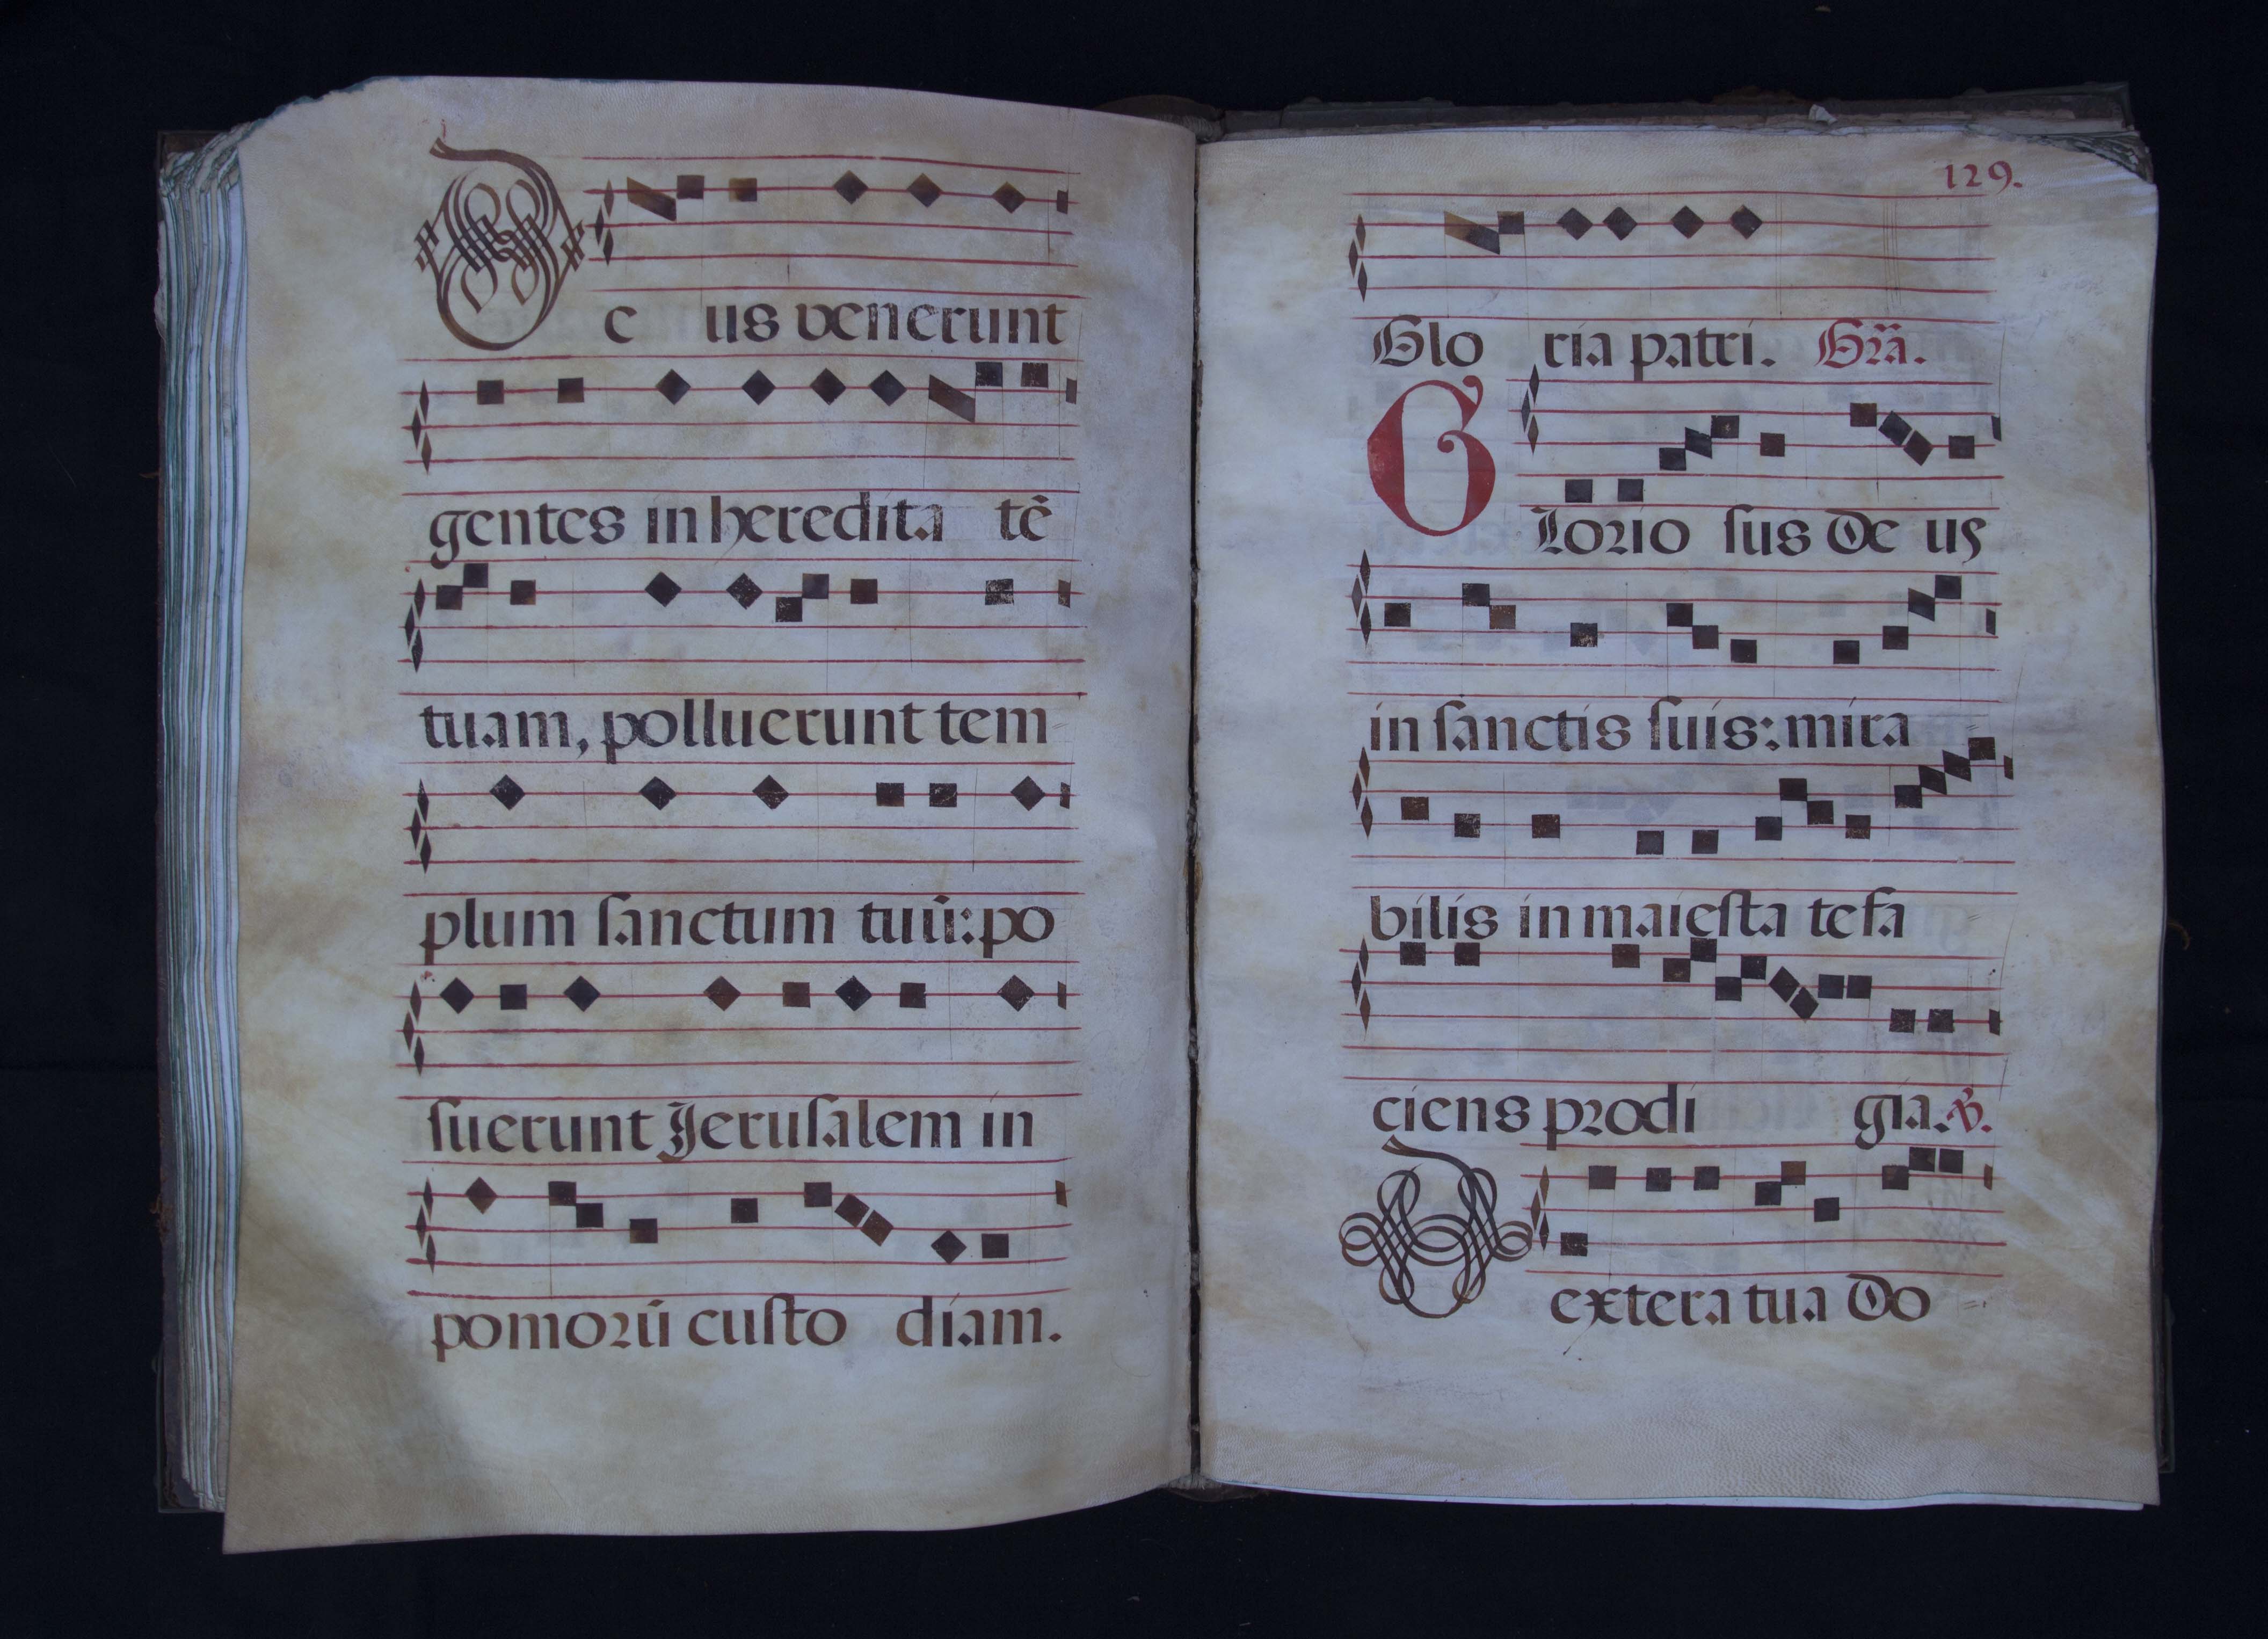 De us venerunt
gentes in heredita tē
tuam, polluerunt tem
plum sanctum tuū: po
suerunt Jerusalem in
pomorū custo diam.
129.
Glo ria patri. Gra̅.
Glorio sus de us
in sanctis suis: mira
bilis in maiesta te fa
ciens prodi gia. ℣.
Dextera tua do